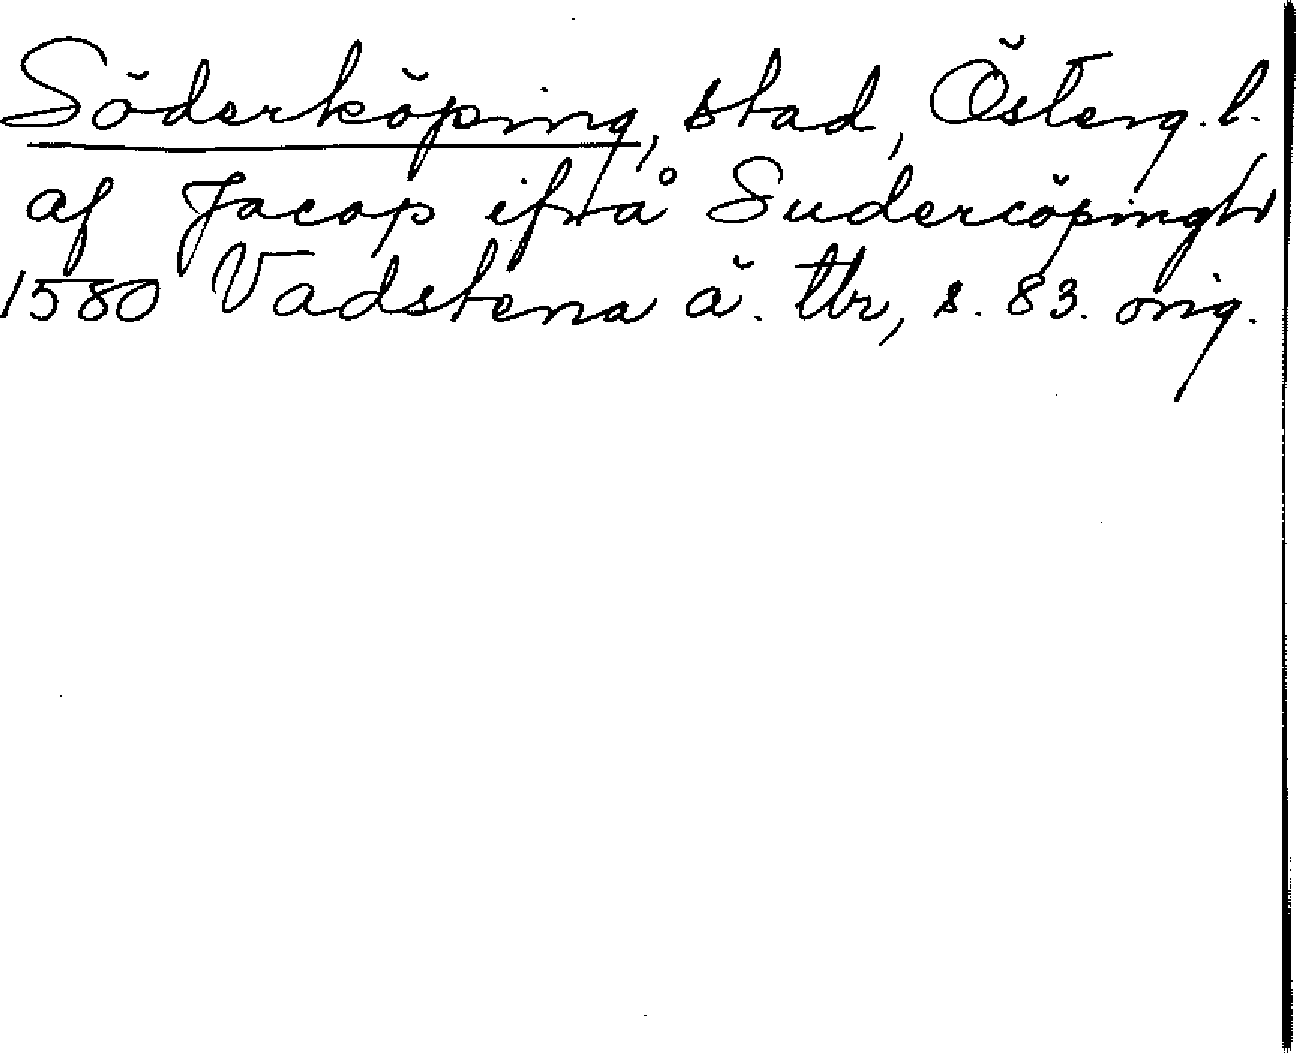 Söderköping, stad, Österg. l.
af Jacop ifrå Sudercöpingh
1580 Vadstena ä. tbr, s. 83. orig.